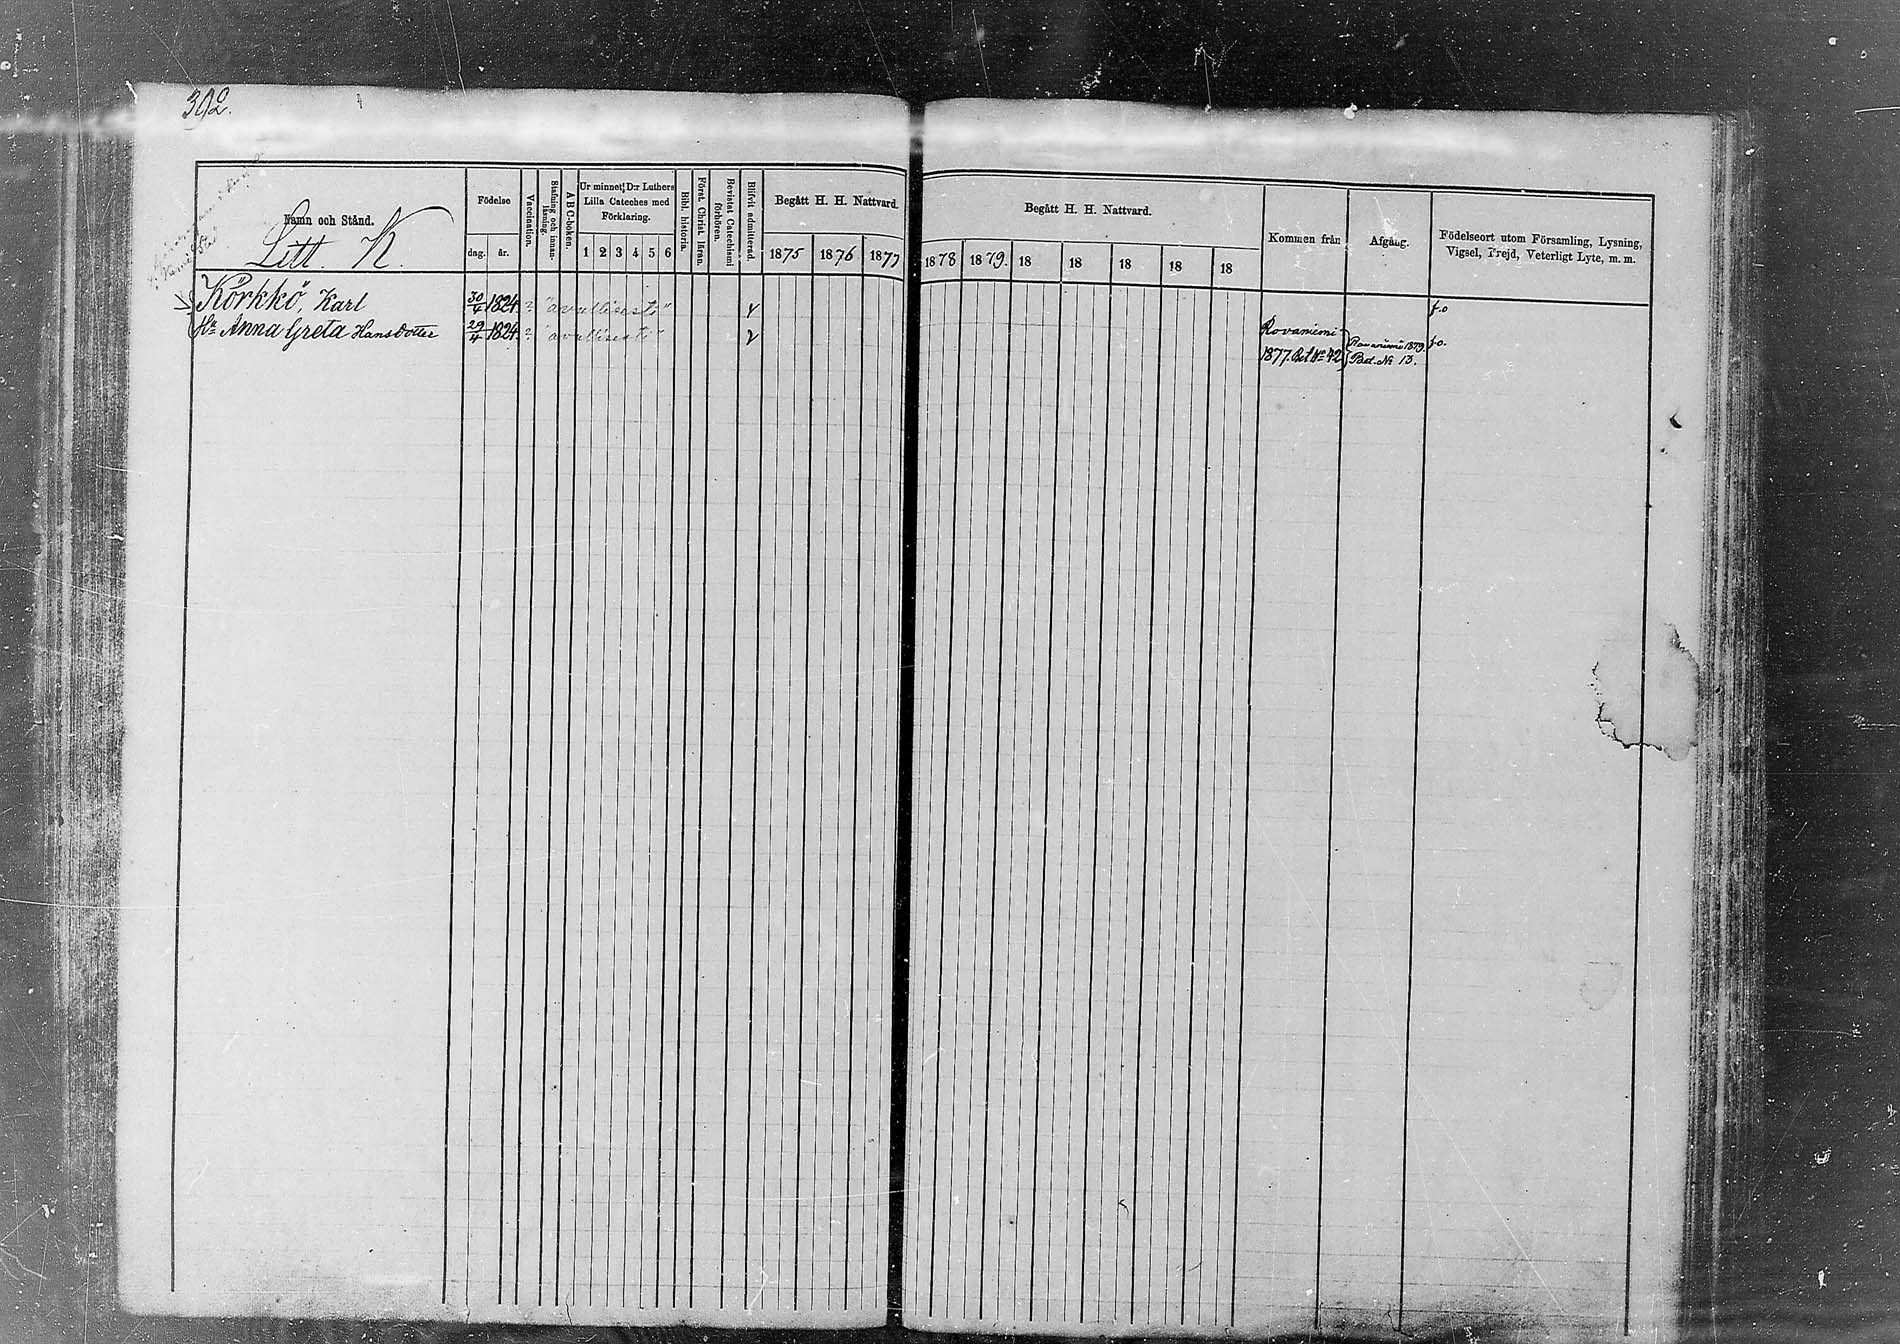 302.
Namn och Stånd.
Litt. K.
Födelse
dag.
år.
Vaccination.
Stafning och innan-
läsning.
A B C-boken.
Ur minnet: D:r Luthers
Lilla Cateches med
Förklaring.
1 2 3 4 5 6
Bibl. historia.
Först. Christ. läran.
Bevistat Catechismi
förhören.
Blifvit admitterad.
Begått H. H. Nattvard.
1875 1876 1877
Begått H. H. Nattvard.
1878 1879. 18 18 18 18 18
Kommen från
Afgång.
Födelseort utom Församling, Lysning,
Vigsel, Frejd, Veterligt Lyte, m. m.
Körkkö, Karl 30/4 1824. ? "avulliseesti" f.o
Anna Greta Hansdotter 29/4 1824. ? "avulliseesti" Rovaniemi Rovaniemi 1879. f.o.
1877. Bet. No 42 Bet. No 13.